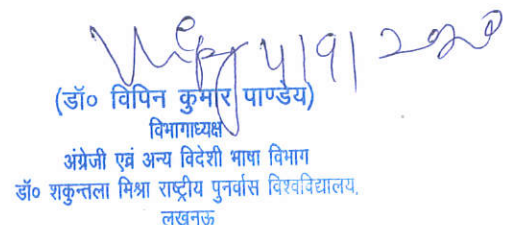 4/9/2020
(डॉ० विपिन कुमार पाण्डेय)
विभागाध्यक्ष
अंग्रेजी एवं अन्य विदेशी भाषा विभाग
डॉ० शकुन्तला मिश्रा राष्ट्रीय पुनर्वास विश्वविद्यालय,
लखनऊ